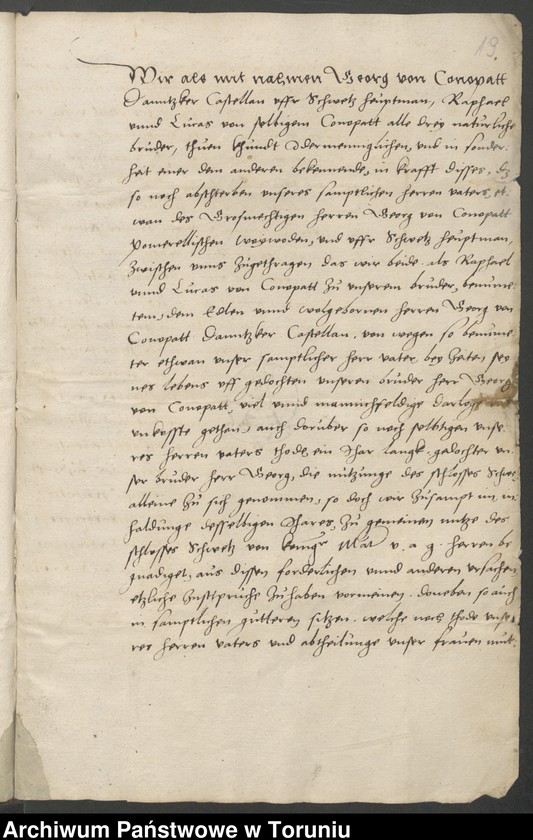 19.
Wir als mit nahmen Georg von Conopatt
Danntzker Castellan uffr Schwetz heuptman, Raphael
unnd Lucas von selbigem Conopatt alle drey naturliche
bruder, thuen khundt Idermenniglichen, und in sonder-
heit einer dem anderen bekennende, in krafft disses,
so noch abstherben unseres samptlichen herren vaters, et-
wan des Grosmechtigen herren Georg von Conopatt
Pomerellischen woywoden, und uffr Schwetz heuptman,
Zwischen unns Zugethragen das wir beide als Raphael
unnd Lucas von Conopatt Zu unserem bruder, benume-
tem, dem Edlen unnd wolgebornen herren Georg von
Conopatt Danntzker Castellan, von wegen so benume-
ter ethwan unser samptlicher herr vater bey Zeten, sey-
nes lebens uff gedochten unseren bruder herr Georg
von Conopatt, viel unnd mannichfeldige darloge
unkosste gethan, auch doruber so noch selbtigen unse-
res herren vaters thode, ein Ihar langk, gedochter un-
ser bruder herr Georg, die nutzunge des schlosses Schwetz
alleine Zu sich genommen, so doch wir Zusampt im in-
haldunge desselbigen Ihares, Zu gemeinem nutze des
schlosses Schwetz von Kunig Mat u. a. g. herren be-
gnadiget, aus dissen forderlichen unnd anderen ursachen
etzliche Zusspruche Zuhaben vormeinen. doneben so auch
in samptlichen gutteren sitzen, welche noch thode unse-
res herren vaters und abtheilunge unser frauen mut-
Archiwum Państwowe w Toruniu